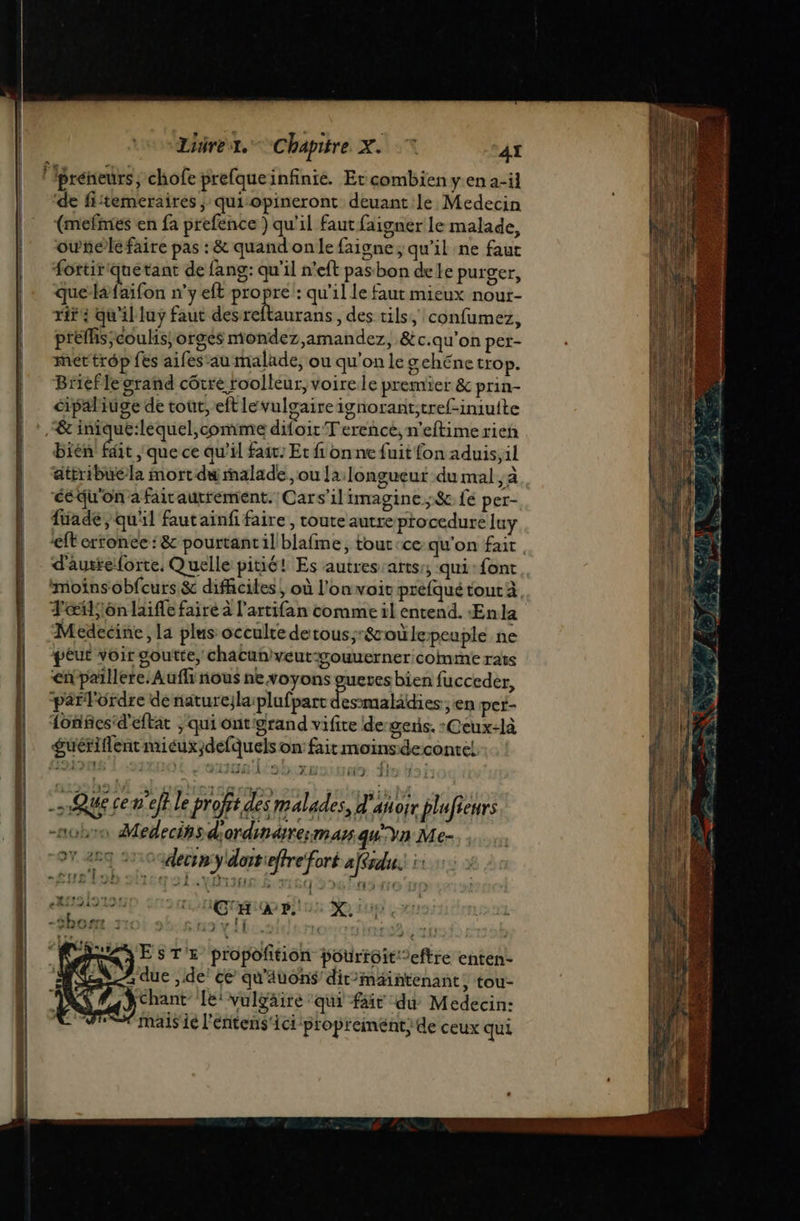 Liure 1. Chapitre X. 41
preneurs, chose presque infinie. Et combien y en a-il
de si temeraires, qui opineront deuant le Medecin
(mesmes en sa presence) qu'il faut saigner le malade,
ou ne le faire pas : & quand on le saigne, qu'il ne faut
sortir que tant de sang: qu'il n'est pas bon de le purger,
que la saison n'y est propre : qu'il le faut mieux nour-
rir : qu'il luy faut des restaurans, des tils, consumez,
pressis, coulis, orges mondez, amandez, &c. qu'on per-
met trop ses aises au malade, ou qu'on le gehéne trop.
Brief le grand côtre roolleur, voire le premier & prin-
cipal iuge de tout, est le vulgaire ignorant, tref-iniuste
& inique: lequel, comme disoit Terence, n'estime rien
bien fait, que ce qu'il fait. Et si on ne suit son aduis, il
attribue la mort du malade, ou la longueur du mal, à
ce qu'on a fait autrement. Car s'il imagine, & se per-
suade, qu'il faut ainsi faire, toute autre procedure luy
est erronee : & pourtant il blasme, tout ce qu'on fait
d'autre sorte. Quelle pitié! Es autres arts, qui sont
moins obscurs & difficiles, où l'on voit presqué tout à
l'œil, on laisse faire à l'artisan comme il entend. En la
Medecine, la plus occulte de tous, & où le peuple ne
peut voir goutte, chacun veut gouuerner comme rats
en paillere. Aussi nous ne voyons gueres bien succeder,
par l'ordre de nature, la plus part des maladies, en per-
sonnes d'estat, qui ont grand visite de gens. Ceux-là
guerissent mieux, desquels on fait moins de conte.
Que ce n'est le profit des malades, d'auoir plusieurs
Medecins d'ordinaire: mais qu'vn Me-
decin y doit estre fort assidu.
CHAP. X.
CESTE proposition pourroit estre enten-
due, de ce qu'auons dit maintenant, tou-
chant le vulgaire qui fait du Medecin:
mais ie l'entens ici proprement, de ceux qui